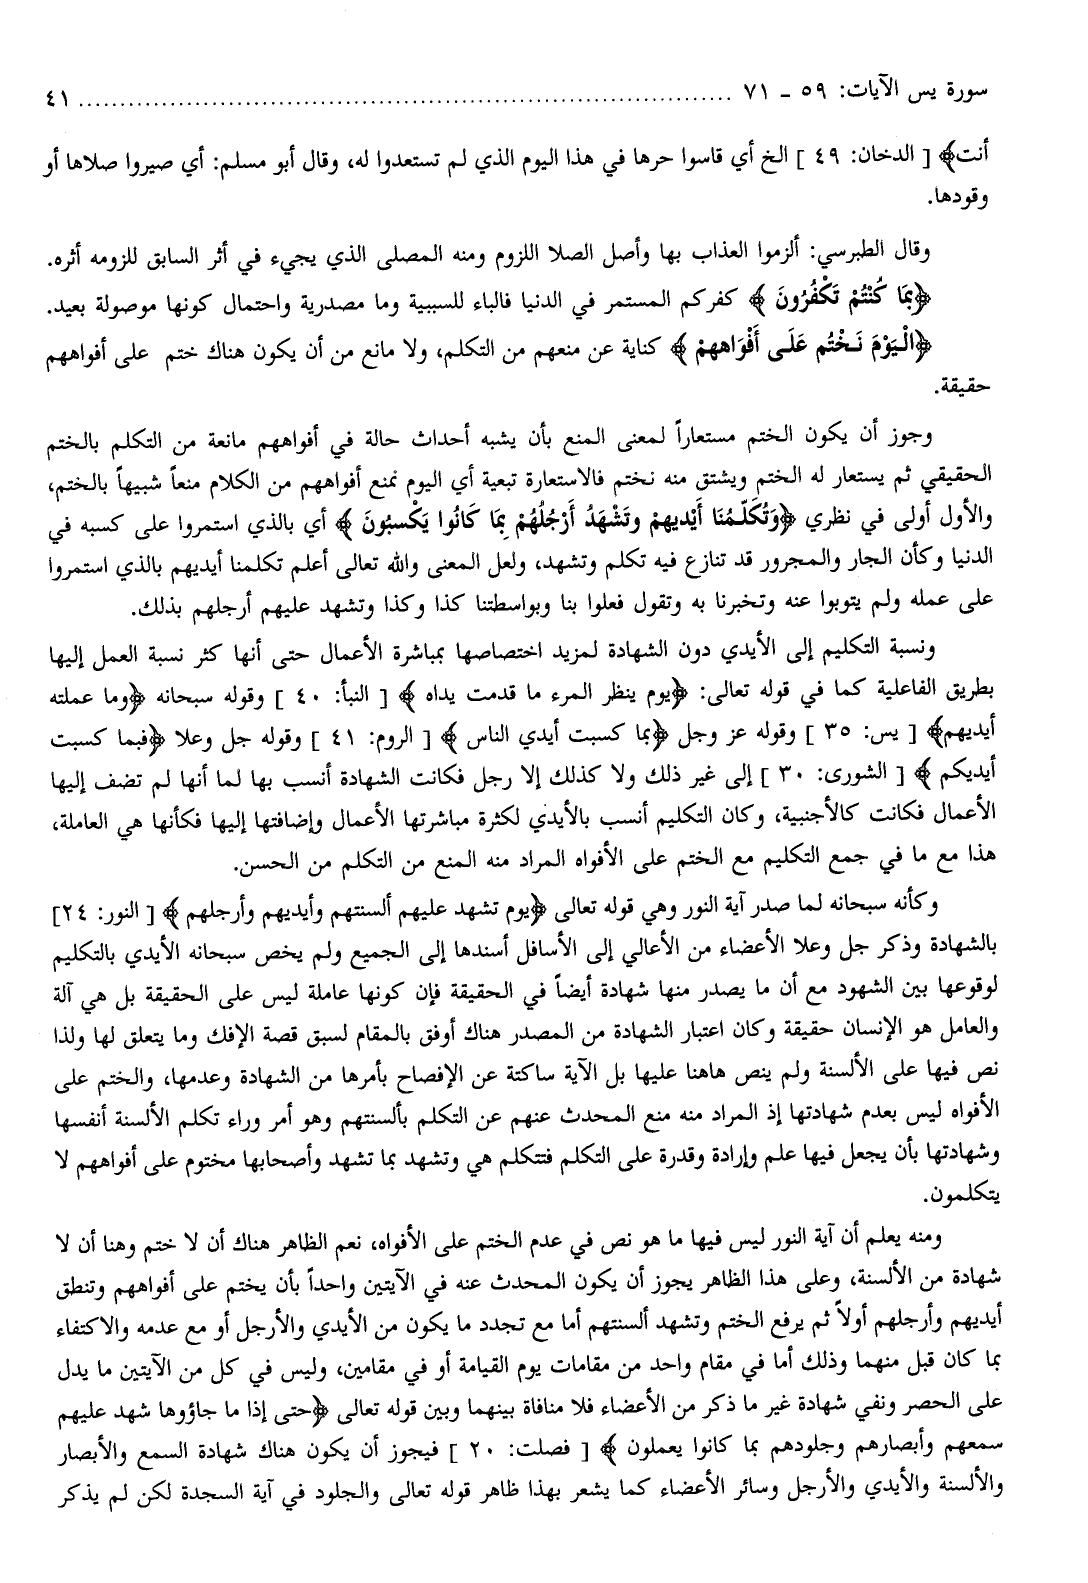 سورة يس الآيات: ٥٩ ـ ٧١ ........................................................................................ ٤١
أنت﴾ [ الدخان: ٤٩ ] الخ أي قاسوا حرها في هذا اليوم الذي لم تستعدوا له، وقال أبو مسلم: أي صيروا صلاها أو
وقودها.
وقال الطبرسي: ألزموا العذاب بها وأصل الصلا اللزوم ومنه المصلى الذي يجيء في أثر السابق للزومه أثره.
﴿بِمَا كُنْتُمْ تَكْفُرُونَ ﴾ كفركم المستمر في الدنيا فالباء للسببية وما مصدرية واحتمال كونها موصولة بعيد.
﴿الْيَوْمَ نَخْتُم عَلَى أَفْوَاههِمْ ﴾ كناية عن منعهم من التكلم، ولا مانع من أن يكون هناك ختم على أفواههم
حقيقة.
وجوز أن يكون الختم مستعاراً لمعنى المنع بأن يشبه أحداث حالة في أفواههم مانعة من التكلم بالختم
الحقيقي ثم يستعار له الختم ويشتق منه نختم فالاستعارة تبعية أي اليوم نمنع أفواههم من الكلام منعاً شبيهاً بالختم،
والأول أولى في نظري ﴿وَتُكَلّمُنَا أَيْديهِمْ وتَشْهَدُ أَرْجُلُهُمْ بِمَا كَانُوا يَكْسبُونَ ﴾ أي بالذي استمروا على كسبه في
الدنيا وكأن الجار والمجرور قد تنازع فيه تكلم وتشهد، ولعل المعنى والله تعالى أعلم تكلمنا أيديهم بالذي استمروا
على عمله ولم يتوبوا عنه وتخبرنا به وتقول فعلوا بنا وبواسطتنا كذا وكذا وتشهد عليهم أرجلهم بذلك.
ونسبة التكليم إلى الأيدي دون الشهادة لمزيد اختصاصها بمباشرة الأعمال حتى أنها كثر نسبة العمل إليها
بطريق الفاعلية كما في قوله تعالى: ﴿يوم ينظر المرء ما قدمت يداه ﴾ [ النبأ: ٤٠ ] وقوله سبحانه ﴿وما عملته
أيديهم﴾ [ يس: ٣٥ ] وقوله عز وجل ﴿بما كسبت أيدي الناس ﴾ [ الروم: ٤١ ] وقوله جل وعلا ﴿فبما كسبت
أيديكم ﴾ [ الشورى: ٣٠ ] إلى غير ذلك ولا كذلك إلا رجل فكانت الشهادة أنسب بها لما أنها لم تضف إليها
الأعمال فكانت كالأجنبية، وكان التكليم أنسب بالأيدي لكثرة مباشرتها الأعمال وإضافتها إليها فكأنها هي العاملة،
هذا مع ما في جمع التكليم مع الختم على الأفواه المراد منه المنع من التكلم من الحسن.
وكأنه سبحانه لما صدر آية النور وهي قوله تعالى ﴿يوم تشهد عليهم ألسنتهم وأيديهم وأرجلهم ﴾ [ النور: ٢٤]
بالشهادة وذكر جل وعلا الأعضاء من الأعالي إلى الأسافل أسندها إلى الجميع ولم يخص سبحانه الأيدي بالتكليم
لوقوعها بين الشهود مع أن ما يصدر منها شهادة أيضاً في الحقيقة فإن كونها عاملة ليس على الحقيقة بل هي آلة
والعامل هو الإنسان حقيقة وكان اعتبار الشهادة من المصدر هناك أوفق بالمقام لسبق قصة الإفك وما يتعلق لها ولذا
نص فيها على الألسنة ولم ينص هاهنا عليها بل الآية ساكتة عن الإفصاح بأمرها من الشهادة وعدمها، والختم على
الأفواه ليس بعدم شهادتها إذ المراد منه منع المحدث عنهم عن التكلم بألسنتهم وهو أمر وراء تكلم الألسنة أنفسها
وشهادتها بأن يجعل فيها علم وإرادة وقدرة على التكلم فتتكلم هي وتشهد بما تشهد وأصحابها مختوم على أفواههم لا
يتكلمون.
ومنه يعلم أن آية النور ليس فيها ما هو نص في عدم الختم على الأفواه، نعم الظاهر هناك أن لا ختم وهنا أن لا
شهادة من الألسنة، وعلى هذا الظاهر يجوز أن يكون المحدث عنه في الآيتين واحداً بأن يختم على أفواههم وتنطق
أيديهم وأرجلهم أولاً ثم يرفع الختم وتشهد ألسنتهم أما مع تجدد ما يكون من الأيدي والأرجل أو مع عدمه والاكتفاء
بما كان قبل منهما وذلك أما في مقام واحد من مقامات يوم القيامة أو في مقامين، وليس في كل من الآيتين ما يدل
على الحصر ونفي شهادة غير ما ذكر من الأعضاء فلا منافاة بينهما وبين قوله تعالى ﴿حتى إذا ما جاؤوها شهد عليهم
سمعهم وأبصارهم وجلودهم بما كانوا يعملون ﴾ [ فصلت: ٢٠ ] فيجوز أن يكون هناك شهادة السمع والأبصار
والألسنة والأيدي والأرجل وسائر الأعضاء كما يشعر بهذا ظاهر قوله تعالى والجلود في آية السجدة لكن لم يذكر